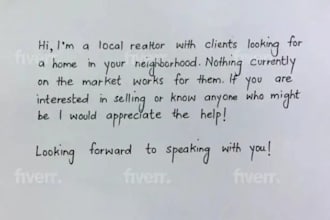 Hi, I'm a local realtor with clients looking for
a home in your neighborhood. Nothing currently
on the market works for them. If you are
interested in selling or know anyone who might
be I would appreciate the help!
Looking forward to speaking with you!
fiverr. fiverr. fiverr.
fiverr. fiverr. fiverr.